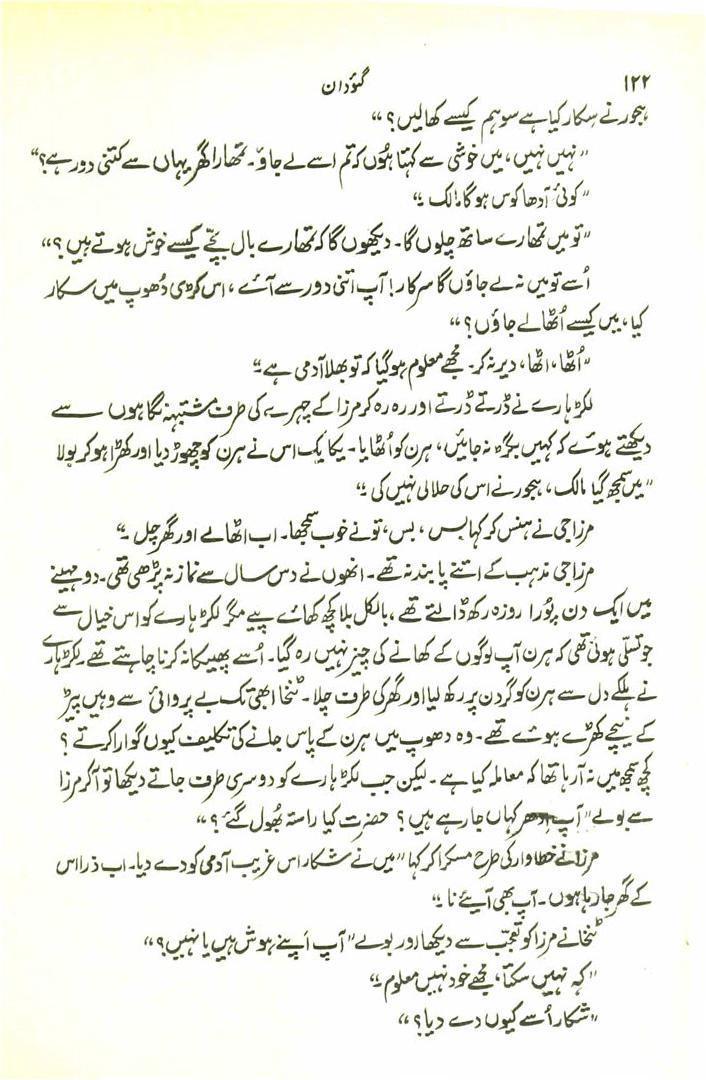 ۱۲۲ گئودان
ہجور نے سکار کیا ہے سو ہم کیسے کھالیں؟“
”نہیں نہیں، میں خوشی سے کہتا ہُوں کہ تم اسے لے جاؤ۔ تمھارا گھر یہاں سے کتنی دور ہے؟“
”کوئی آدھا کوس ہوگا مالک۔“
”تو میں تمھارے ساتھ چلوں گا۔ دیکھوں گا کہ تمھارے بال بچّے کیسے خوش ہوتے ہیں؟“
اُسے تو میں نہ لے جاؤں گا سرکار! آپ اتنی دور سے آئے، اس کڑی دُھوپ میں سکار
کیا، میں کیسے اُٹھا لے جاؤں؟“
”اُٹھا، اٹھا، دیر نہ کر۔ مجھے معلوم ہوگیا کہ تو بھلا آدمی ہے۔“
لکڑہارے نے ڈرتے ڈرتے اور رہ رہ کر مرزا کے چہرے کی طرف مشتبہہ نگاہوں سے
دیکھتے ہوئے کہ کہیں بگڑ نہ جائیں، ہرن کو اُٹھایا۔ یکایک اس نے ہرن کو چھوڑ دیا اور کھڑا ہو کر بولا
”میں سمجھ گیا مالک، ہجور نے اس کی حلالی نہیں کی۔“
مرزا جی نے ہنس کر کہا بس، بس، تونے خوب سمجھا۔ اب اٹھالے اور گھر چل۔“
مرزا جی مذہب کے اتنے پابند نہ تھے۔ انھوں نے دس سال سے نماز نہ پڑھی تھی۔ دو مہینے
میں ایک دن پُورا روزہ رکھ ڈالتے تھے، بالکل بلا کچھ کھائے پیے مگر لکڑہارے کو اس خیال سے
جو تسلّی ہوئی تھی کہ ہرن آپ لوگوں کے کھانے کی چیز نہیں رہ گیا۔ اُسے پھیکا نہ کرنا چاہتے تھے۔ لکڑہارے
نے ہلکے دل سے ہرن کو گردن پر رکھ لیا اور گھر کی طرف چلا۔ ٹنخا ابھی تک بے پروائی سے وہیں پیڑ
کے نیچے کھڑے ہوئے تھے۔ وہ دھوپ میں ہرن کے پاس جانے کی تکلیف کیوں گوارا کرتے؟
کچھ سمجھ میں نہ آرہا تھا کہ معاملہ کیا ہے۔ لیکن جب لکڑہارے کو دوسری طرف جاتے دیکھا تو آکر مرزا
سے بولے ”آپ ادھر کہاں جارہے ہیں؟ حضرت کیا راستہ بھُول گئے؟“
مرزا نے خطاوار کی طرح مسکرا کر کہا ”میں نے شکار اس غریب آدمی کو دے دیا۔ اب ذرا اس
کے گھر جارہا ہوں۔ آپ بھی آیئے نا۔“
ٹنخا نے مرزا کو تعجّب سے دیکھا اور بولے ”آپ اپنے ہوش میں ہیں یا نہیں؟“
”کہہ نہیں سکتا، مجھے خود نہیں معلوم۔“
”شکار اُسے کیوں دے دیا؟“